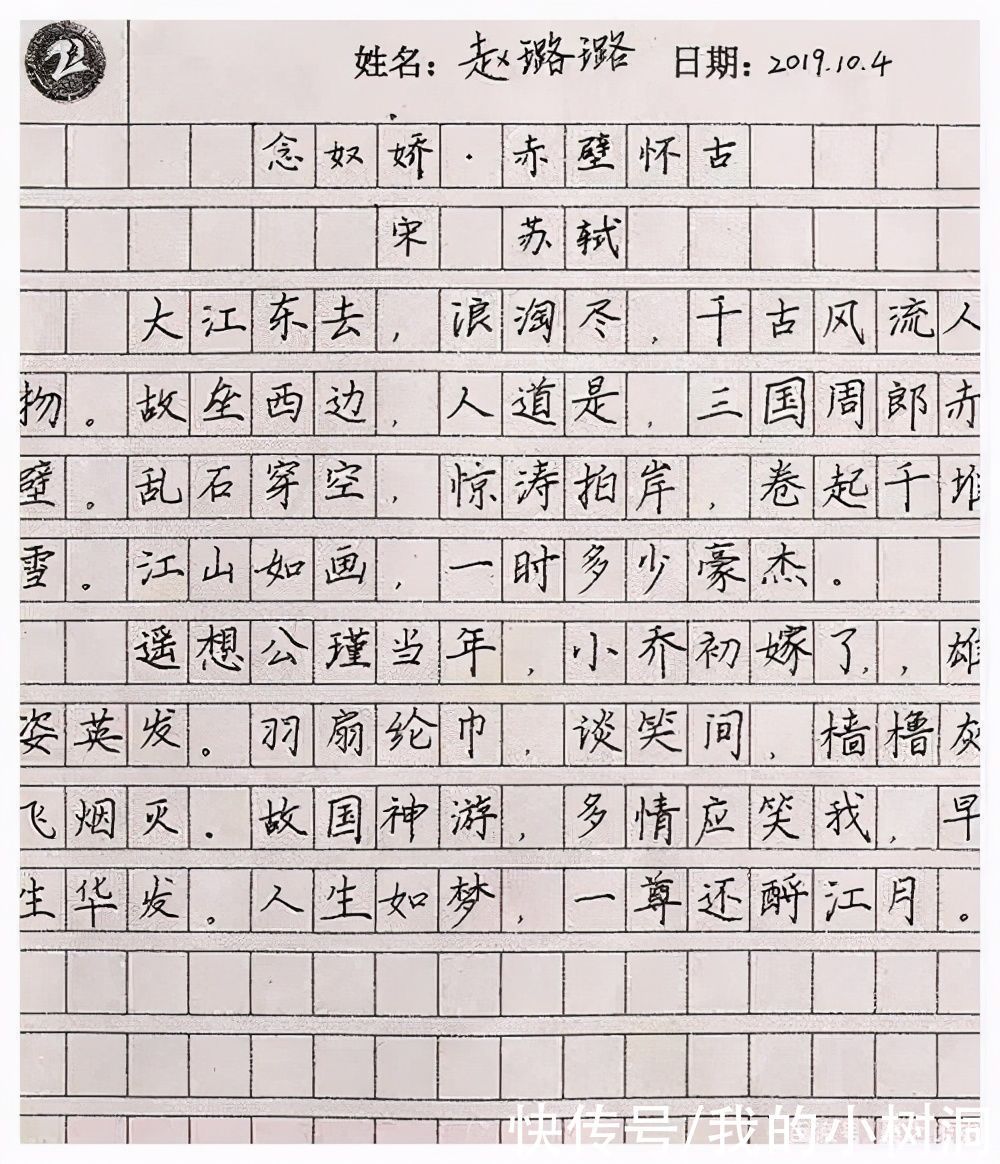 2
姓名：赵璐璐 日期：2019.10.4
念奴娇·赤壁怀古
宋 苏轼
大江东去，浪淘尽，千古风流人
物。故垒西边，人道是，三国周郎赤
壁。乱石穿空，惊涛拍岸，卷起千堆
雪。江山如画，一时多少豪杰。
遥想公瑾当年，小乔初嫁了，，雄
姿英发。羽扇纶巾，谈笑间，樯橹灰
飞烟灭．故国神游，多情应笑我，早
生华发。人生如梦，一尊还酹江月。
快传号/我的小树洞